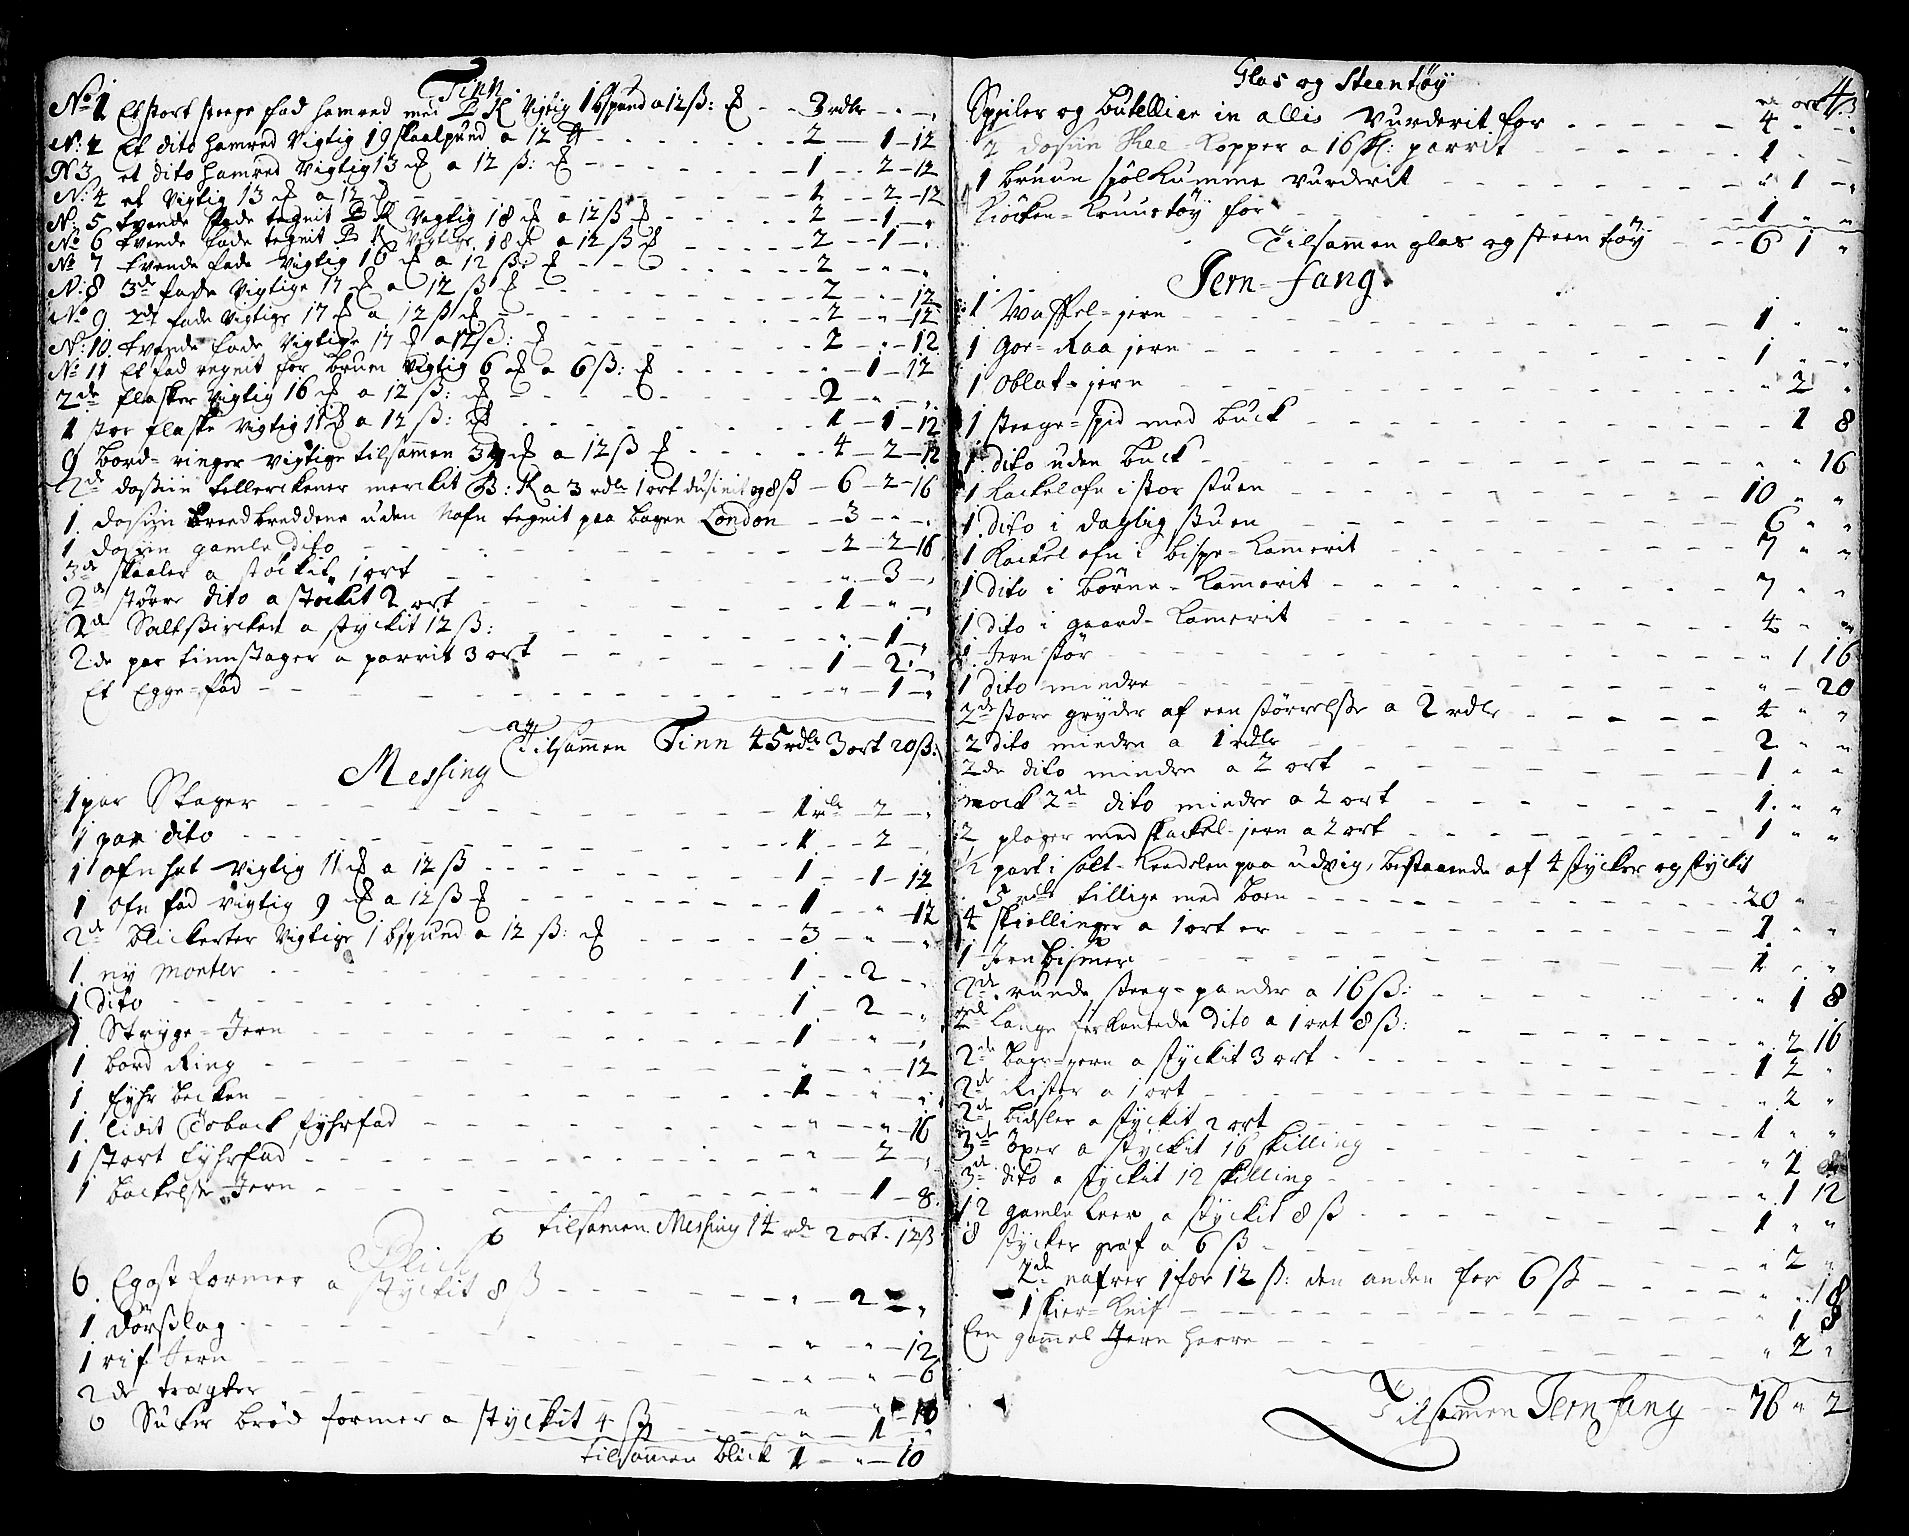 Tinn.
No 1 Et stort steege fad hamred med B K Vigtig 1 bspund a 12 ß: ℔ - - 3 rdlr - " - "
N: 2 Et dito hamred Vigtig 19 skaalpund a 12 ß - - 2 - 1 - 12
N 3 et dito hamred Vigtig 13 ℔ a 12 ß: ℔ - - 1 - 2 - 12
N: 4 et Vigtig 13 ℔ a 12 ℔ - - 1 - 2 - 12
N: 5 tvende fade tegnit B K Vegtig 18 ℔ a 12 ß ℔ - - 2 - 1 - "
No 6 tvende fade tegnit B K Vegtige 18 ℔ a 12 ß ℔ - - 2 - 1 - "
No 7 tvende fade Vigtig 16 ℔ a 12 ß: ℔ - - 2 - " - "
N: 8 3de fade Vigtige 17 ℔ a 12 ß ℔ - - 2 - " - 12
No 9. 2de fade Vigtige 17 ℔ a 12 ß ℔ - - 2 - " - 12
N: 10. tvende fade Vigtige 17 ℔ a 12 ß: ℔ - - 2 - " - 12
No 11 Et fad regnit for bruen Vigtig 6 ℔ a 6 ß: ℔ - - " - 1 - 12
2de flasker Vigtig 16 ℔ a 12 ß: ℔ - - 2 - " - "
1 stor flaske Vigtig 11 ℔ a 12 ß: ℔ - - 1 - 1 - 12
9 bord-ringer Vigtige tilsammen 39 ℔ a 12 ß ℔ - - 4 - 2 - 12
2de dossiin tellerckener merckit B: K a 3 rdlr 1 ort dusinit og 8 ß - 6 - 2 - 16
1. dossiin breedbreddene uden Nafn tegnit paa bagen London - - 3 - " - "
1. dosiin gamle dito - - 2 - 2 - 16
3de skaaler a støckit 1 ort - - " - 3 - "
2de større dito a støckit 2 ort - - 1 - " - "
2de Saltzircken a styckit 12 ß: - - " - 1 - "
2de par tinnstager a parrit 3 ort - - 1 - 2 - "
Et Egge-fad - - " - 1 - "
Tilsammen Tinn 45 rdlr 3 ort 20 ß:
Messing
1 par Stager - - 1 rdlr - 2 - "
1 par dito - - 1 - 2 - "
1 ofn hat Vigtig 11 ℔ a 12 ß - - 1 - 1 - 12
1 ofn fad Vigtig 9 ℔ a 12 ß ℔ - - 1 - " - 12
2de blickerter Vigtige 1 bspund a 12 ß: ℔ - - 3 - " - "
1. ny morter - - 1 - 2 - "
1 dito - - 1 - 2 - "
1. Stryge-Jern - - 1 - " - "
1 bord Ring - - " - " - 12
1. fyhr becken - - 1 - " - "
1. lidit Toback fyhrfad - - " - " - 16
1 stort fyhrfad - - " - 2 - "
1 backelse Jern - - " - 1 - 8
tilsamen Messing 14 rdr 2 ort - 12 ß
Blick
6. Egost former a styckit 8 ß - - " - 2 - "
1 dörslag - - " - " - 12
1 rif Jern - - " - " - 6
2de tragter - - " - " - 16
6 Sucker brød former a styckit 4 ß - - " - 1 - "
tilsammen blick 1 - " - 10
Glas og Steentøy
rd ort ß 4
Spiler og butellier in alles vurderit for - - 4 - " - "
2 dosiin Thee-Kopper a 16 sk: parrit - - 1 - " - "
1 bruun spöl Kumme vurderit - - " 1 - "
Kiöcken-Kruustøy for - - 1 " "
Tilsammen glas og steentøy - - 6 1 "
Jern-fang.
1 Waffel-jern - - 1 " "
1 Goe-Raa jern - - 1 " "
1 Oblat-jern - - " 2 "
1 steege-spid med buck - - 1 8
1. dito uden buck - - " " 16
1 Kackelofn i stor stuen - - 10 " "
1 dito i daglig stuen - - 6 " "
1 Kackelofn i bispe-Kamerit - - 7 " "
1 dito i börne-Kamerit - - 7 " "
1 dito i gaard-Kamerit - - 4 " "
1. Jern stör - - " 1 16
1 dito mindre - - " - 20
2de store gryder af een störrelse a 2 rdlr - - 4 " "
2 dito mindre a 1 rdlr - - 2 " "
2de dito mindre a 2 ort - - 1 " "
nock 2de dito mindre a 2 ort - - 1 " "
2 plager med skackel-jern a 2 ort - - 1 " "
1/2 part i salt-Keedelen paa udvig, bestaaende af 4 stycker og styckit
5 rdlr tillige med boen - - 20 " "
4 skiellinger a 1 ort er - - 1 " "
1 Jern bismer - - 1 " "
2de runde steeg-pander a 16 ß: - - " 1 8
2de lange forkantede dito a 1 ort 8 ß: - - " 2 16
2de bage-jern a styckit 3 ort - - 1 2 "
2de Rister a 1 ort - - " 2 "
2de bidsler a styckit 2 ort - - 1 " "
3de Öxer a styckit 16 skilling - - " 2 "
3de dito a styckit 12 skilling - - " 1 12
12 gamle leer a styckit 8 ß - - 1 " "
8 stycker graf a 6 ß - - " 2 "
2de nafrer 1 for 12 ß: den anden for 6 ß - - " " 18
1 skier-Knif - - " 1 8
Een gammel Jern harre - - " 2 "
Tilsammen Jernfang - - 76 " 2